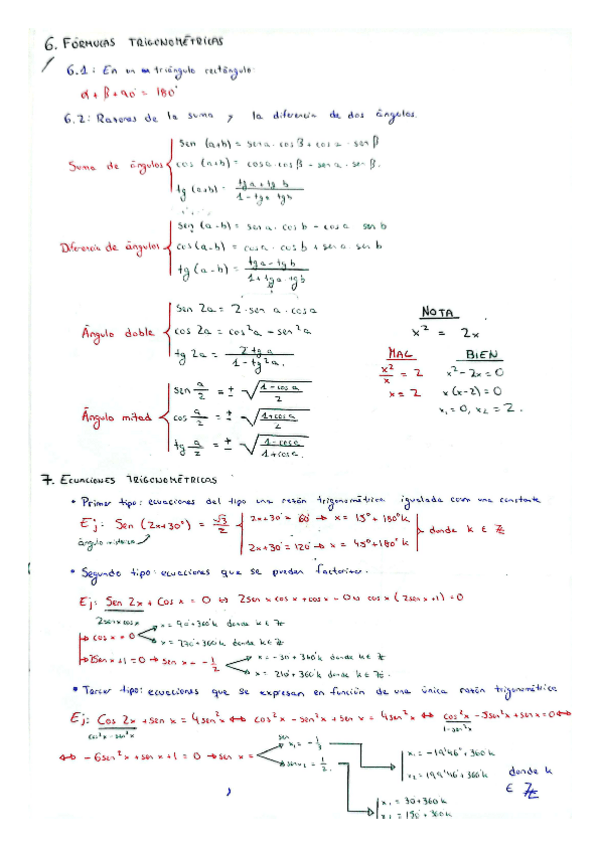 6. FÓRMULAS TRIGONOMÉTRICAS
6.1: En un triángulo rectángulo:
α + β + 90° = 180°
6.2: Razones de la suma y la diferencia de dos ángulos.
Suma de ángulos
sen (a+b) = sen a · cos β + cos a · sen β
cos (a+b) = cos a · cos β - sen a · sen β.
tg (a+b) = (tg a + tg b) / (1 - tg a · tg b)
Diferencia de ángulos
sen (a-b) = sen a · cos b - cos a sen b
cos (a-b) = cos a · cos b + sen a · sen b
tg (a-b) = (tg a - tg b) / (1 + tg a · tg b)
Ángulo doble
sen 2a = 2 · sen a · cos a
cos 2a = cos² a - sen² a
tg 2a = 2 tg a / (1 - tg² a).
Ángulo mitad
sen a/2 = ± √((1 - cos a) / 2)
cos a/2 = ± √((1 + cos a) / 2)
tg a/2 = ± √((1 - cos a) / (1 + cos a))
NOTA
x² = 2x
MAL
x²/x = 2
x = 2
BIEN
x² - 2x = 0
x (x-2) = 0
x₁ = 0, x₂ = 2.
7. ECUACIONES TRIGONOMÉTRICAS
• Primer tipo: ecuaciones del tipo una razón trigonométrica igualada con una constante
Ej: Sen (2x+30°) = √3/2
2x+30° = 60° → x = 15° + 180° k
2x+30° = 120° → x = 45° + 180° k
donde k ∈ Z
ángulo
• Segundo tipo: ecuaciones que se pueden factorizar.
Ej: Sen 2x + Cos x = 0 ⇔ 2 sen x cos x + cos x = 0 ⇔ cos x (2 sen x + 1) = 0
2 sen x cos x
cos x = 0
x = 90° + 360° k donde k ∈ Z
x = 270° + 360° k donde k ∈ Z
2 sen x + 1 = 0 → sen x = -1/2
x = -30 + 360° k donde k ∈ Z
x = 210° + 360° k donde k ∈ Z.
• Tercer tipo: ecuaciones que se expresan en función de una única razón trigonométrica
Ej: Cos 2x + sen x = 4 sen² x ⇔ cos² x - sen² x + sen x = 4 sen² x ⇔ cos² x - 5 sen² x + sen x = 0 ⇔
cos² x - sen² x
1 - sen² x
⇔ -6 sen² x + sen x + 1 = 0 → sen x =
sen x₁ = -1/3
sen x₂ = 1/2.
x₁ = -19°46° + 360 k
x₂ = 199°46° + 360 k
donde k ∈ Z
x₁ = 30 + 360 k
x₂ = 150° + 360 k